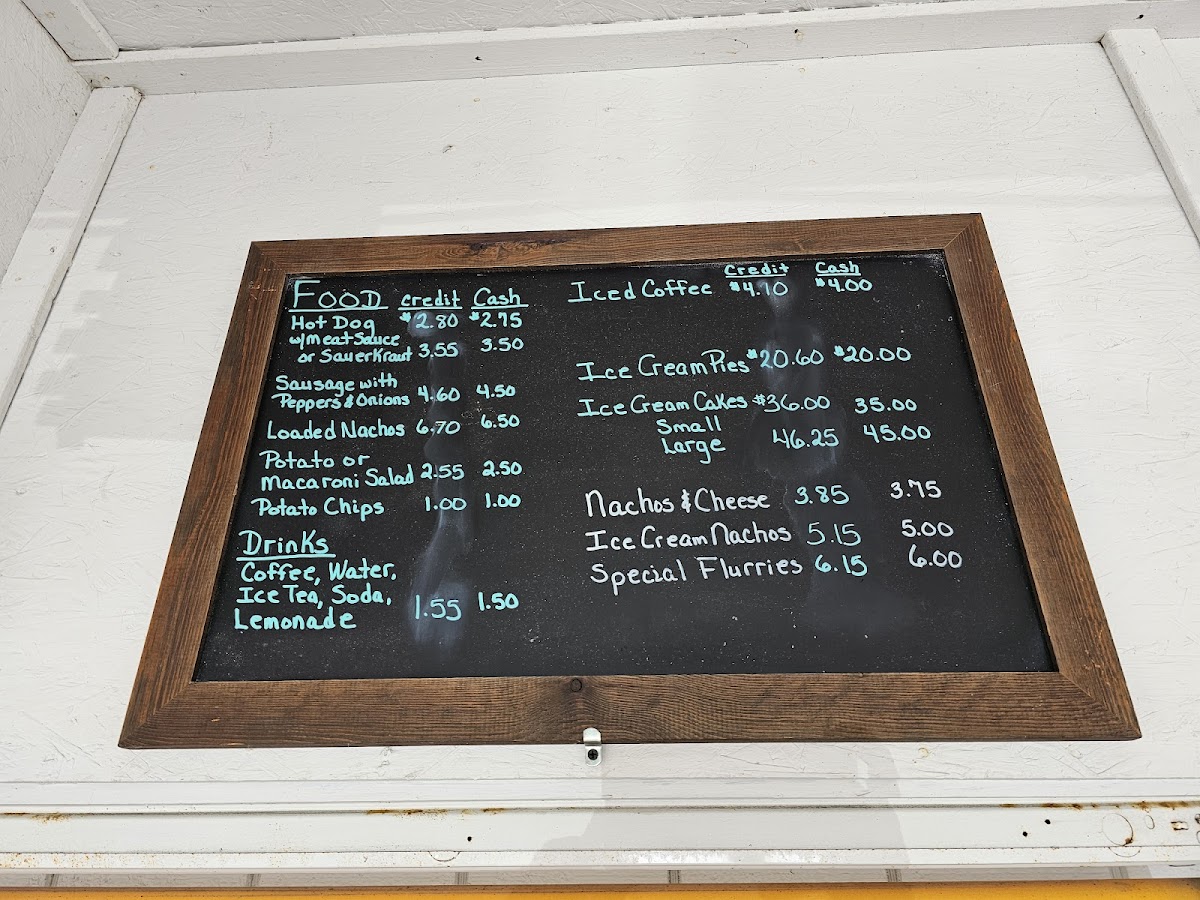 FOOD Credit Cash
Hot Dog $2.80 $2.75
w/meat Sauce
or Sauerkraut 3.55 3.50
Sausage with
Peppers & Onions 4.60 4.50
Loaded Nachos 6.70 6.50
Potato or
Macaroni Salad 2.55 2.50
Potato Chips 1.00 1.00
Drinks
Coffee, Water,
Ice Tea, Soda,
Lemonade 1.55 1.50
Credit Cash
Iced Coffee $4.10 $4.00
Ice Cream Pies $20.60 $20.00
Ice Cream Cakes $36.00 35.00
Small
Large 46.25 45.00
Nachos & Cheese 3.85 3.75
Ice Cream Nachos 5.15 5.00
Special Flurries 6.15 6.00